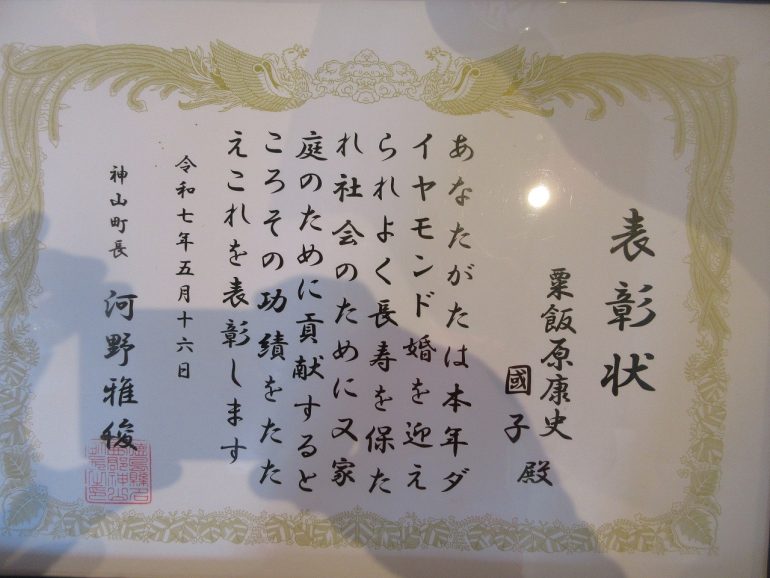 表彰状
粟飯原康史
國子 殿
あなたがたは本年ダ
イヤモンド婚を迎え
られよく長寿を保た
れ社会のために又家
庭のために貢献すると
ころその功績をたた
えこれを表彰します
令和七年五月十六日
神山町長 河野雅俊